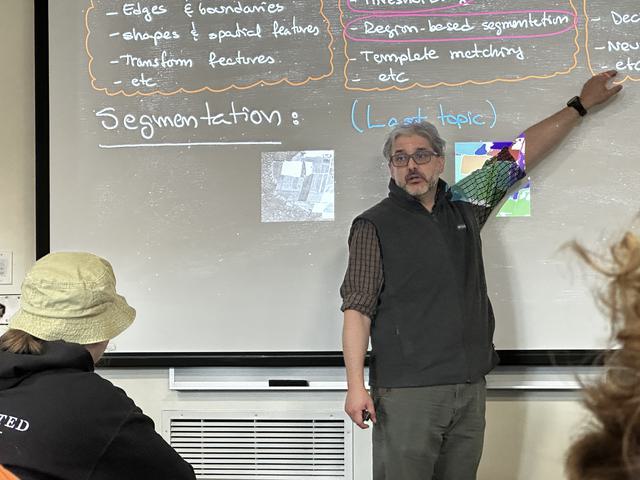 - Edges & boundaries
- shapes & spatial features
- Transform features.
- etc
- Region-based segmentation
- Template matching
- etc
- etc
Segmentation:
(Last topic)
TED